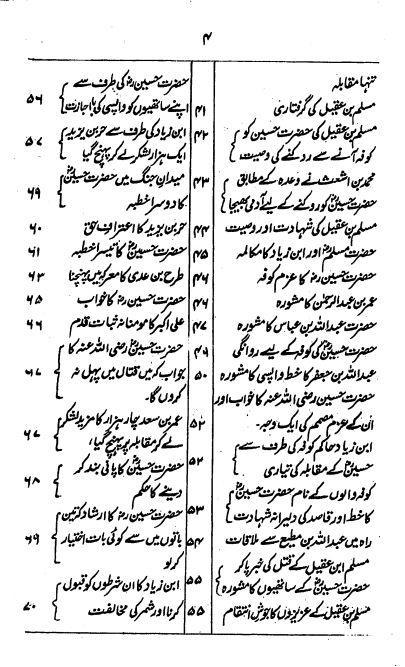 ۴
تنہا مقابلہ
مسلم بن عقیل کی گرفتاری ۴۱
مسلم بن عقیل کی حضرت حسین کو ۴۲
کوفہ آنے سے رد کنے کی وصیت
محمد بن اشعث نے وعدہ کے مطابق ۴۳
حضرت حسینؓ کو روکنے کے لیے آدمی بھیجا
مسلم بن عقیل کی شہادت اور وصیت ۴۴
حضرت مسلمؓ اور ابن زیاد کا مکالمہ ۴۵
حضرت حسین رضؓ کا عزم کوفہ ۴۶
عمر بن عبدالرحمٰن کا مشورہ ۴۶
حضرت عبداللہ بن عباس کا مشورہ ۴۷
حضرت حسینؓ کی کوفہ کے لیے روانگی ۴۹
عبداللہ بن جعفر کا خط واپسی کا مشورہ ۵۰
حضرت حسین رضی اللہ عنہ کا خواب اور
اُن کے عزم مصمم کی ایک وجہ ۵۲
ابن زیاد حاکم کوفہ کی طرف سے
حسینؓ کے مقابلہ کی تیاری ۵۲
کوفہ والوں کے نام حضرت حسینؓ
کا خط اور قاصد کی دلیرانہ شہادت ۵۳
راہ میں عبداللہ بن مطیع سے ملاقات ۵۴
مسلم ابن عقیل کے قتل کی خبر پاکر
حضرت حسینؓ کے ساتھیوں کا مشورہ ۵۵
مسلم بن عقیل کے عزیزوں کا جوش انتقام ۵۵
حضرت حسینؓ کی طرف سے
اپنے ساتھیوں کو واپسی کی اجازت ۵۶
ابن زیاد کی طرف سے حر بن یزید
ایک ہزار لشکر لے کر پہنچ گیا ۵۷
میدان جنگ میں حضرت حسینؓ
کا دوسرا خطبہ ۶۹
حر بن یزید کا اعتراف حق ۶۰
حضرت حسینؓ کا تیسرا خطبہ ۶۱
طرح بن عدی کا معرکہ میں پہنچنا ۶۳
حضرت حسین رضؓ کا خواب ۶۵
علی اکبر کا مومنانہ ثبات قدم ۶۶
حضرت حسینؓ رضی اللہ عنہ کا
جواب کہ میں قتال میں پہل نہ ۶۷
کروں گا۔
عمر بن سعد چار ہزار کا مزید لشکر
لے کر مقابلہ پر پہنچ گیا ۶۷
حضرت حسینؓ کا پانی بند کر
دینے کا حکم ۶۸
حضرت حسین رضؓ کا ارشاد کہ تین
باتوں میں سے کوئی بات اختیار ۶۹
کر لو
ابن زیاد کا ان شرطوں کو قبول
کرنا اور شمر کی مخالفت ۷۰